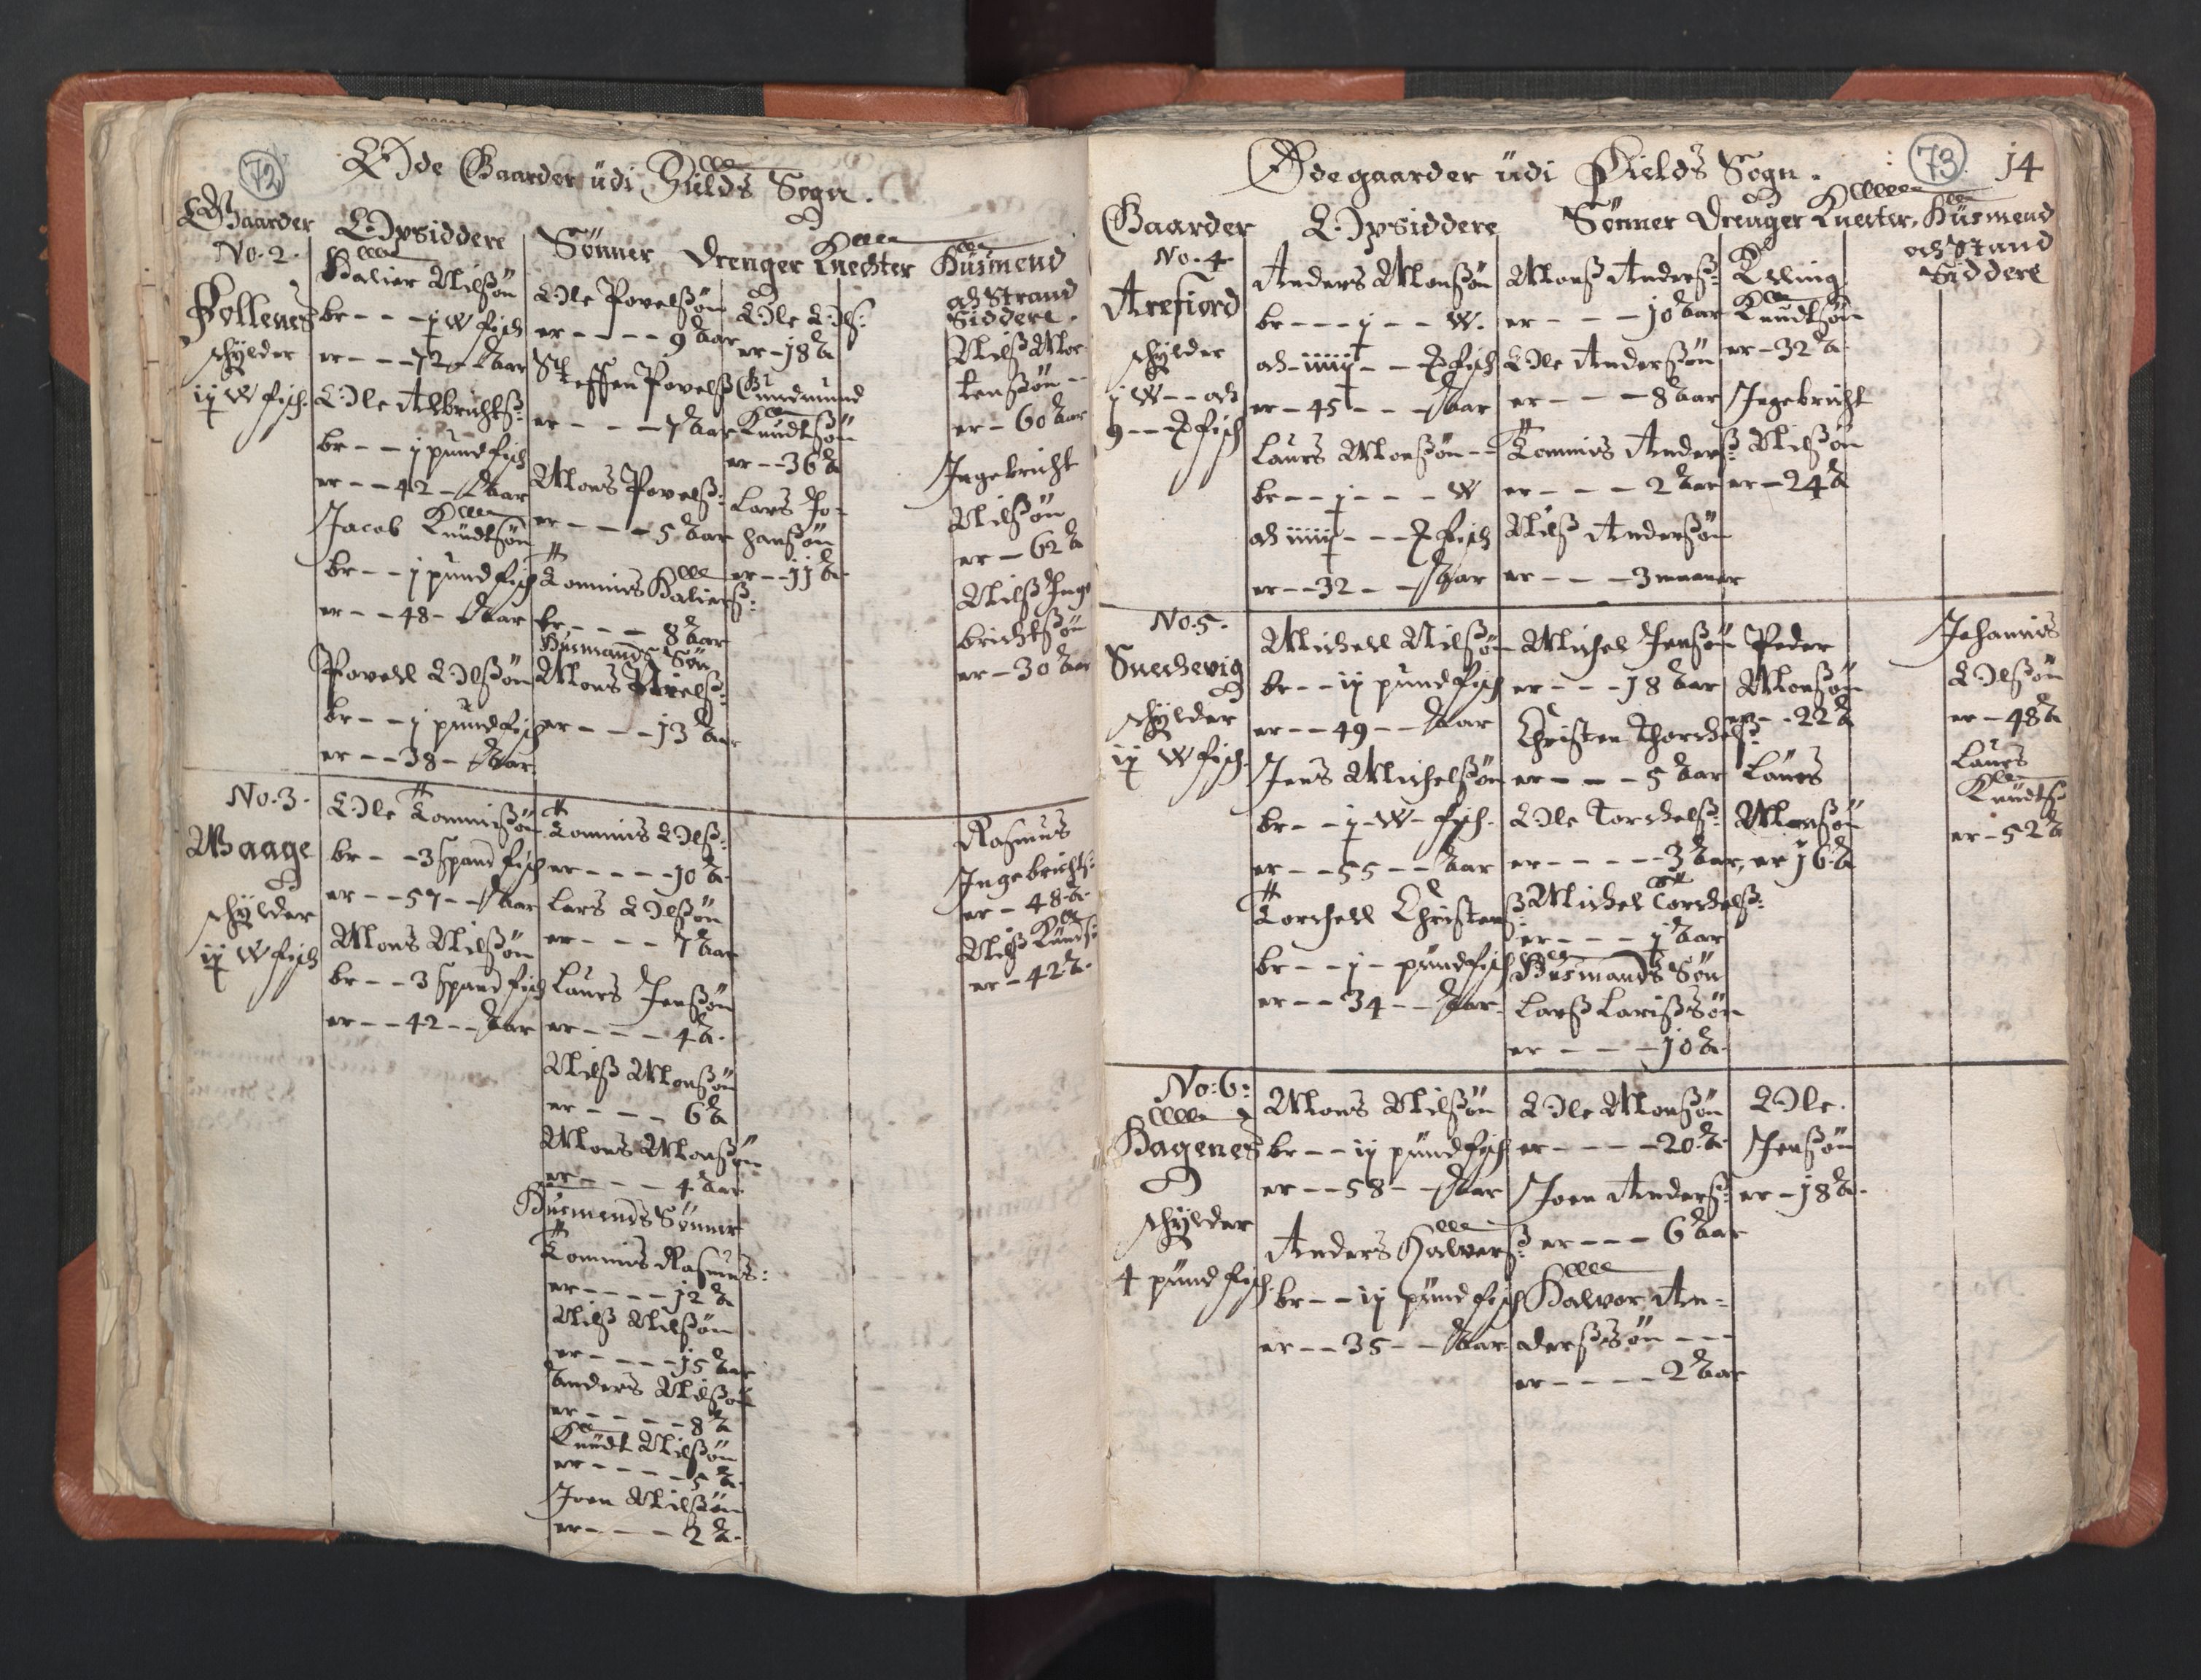 72
Øde Gaarder udi Fields Sogn.
Gaarder
Opsiddere
Sønner
Drenger Knechter
Husmend
och Strand
Siddere.
No. 2.
Follenes
schylder
ij W fisch.
Halver Nilsøn
br - - - j W fisch
er - - - 72 - Aar
Ole Albrichtß:
br - - j pund fisch
er - - 42 - Aar
Jacob Knudtsøn
br - - j pund fisch
er - - 48 - Aar
Povell Olßøn
br - - j pund fisch
er - - 38 - Aar.
Ole Povelßøn
er - - - - 9 Aar
Steffen Povelß
er - - - - 7 Aar
Mons Povelß:
er - - - - 5 Aar
Tommis Halverß:
er - - - 8 Aar
Husmands Søn
Mons Nielß:
er - - - 13 Aar
Ole Olß:
er - 18 A
Gundmund
Knudtßøn
er - - 36 A
Lars Jo-
hanßøn
er - - 11 A.
Nilß Mor-
tenßøn - -
er - 60 Aar
Ingebricht
Nilßøn
er - 62 A
Nilß Inge
brichtßøn
er - 30 Aar
No. 3.
Waage
schylder
ij W fisch
Ole Tommisøn
br - - 3 spand fisch
er - - 57 - - Aar
Mons Nilßøn
br - - 3 spand fisch
er - - 42 - - Aar
Tommis Olß:
er - - - - 10 A.
Lars Olßøn
er - - - 7 Aar
Laurs Jenßøn
er - - - 4 A.
Nilß Monßøn
er - - - 6 A
Mons Monßøn
er - - - 4 Aar
Husmends Sønner
Tommis Rasmus:
er - - - - 12 A
Nilß Nilßøn
er - - - - 15 Aar
Anders Nilßøn
er - - - - - 8 A
Knudt Nilßøn
er - - - - 5 A.
Joen Nilßøn
er - - - - 2 A.
Rasmus
Ingebrichtß:
er - 48 A.
Nilß Knudß:
er - 42 A.
73
14
Ødegaarder udi Fields Sogn.
Gaarder
Opsiddere
Sønner Drenger Knecter, Husmend
och Strand
Siddere
No. 4
Arefiord
schylder
j W - - och
9 - - fisch
Anders Monßøn
br - - - j - - W.
och iiiij - - fisch
er - 45 - - - Aar
Laurs Monßøn - -
br - - j - - - W
och iiiij - - - fisch
er - - 32 - - Aar
Monß Anderß:
er - - - 10 Aar
Ole Anderßøn
er - - - - 8 Aar
Tommis Anderß:
er - - - - 2 Aar
Nilß Anderßøn
er - - - - 3 maaner
Elling
Knudtßøn
er - 32 A.
Ingebricht
Nilßøn
er - 24 A
No. 5.
Snechevig
schylder
ij W fisch.
Michell Nilßøn
br - - ij pund fisch
er - - - 49 - - Aar
Jens Michelßøn
br - - j - W - fisch.
er - - 55 - - Aar
Torchell Christenß
br - - j - pund fisch
er - - 34 - - Aar.
Michel Jenßøn
er - - - 18 Aar
Christen Thorchelß:
er - - - 5 Aar
Ole Torchelß:
er - - - - - 3 Aar,
Michel Torchelß:
er - - - - j Aar
Husmands Søn
Larß Larißsøn
er - - - - 10 A.
Peder
Monßøn
er - - 22 A
Laurs
Monßøn
er 16 A
Johannis
Olßøn
er - 48 A
Laurs
Knudtß
er - 52 A
No: 6:
Hagenes
schylder
4 pund fisch.
Mons Nilßøn
br - - ij pund fisch
er - - 58 - - Aar
Anders Halverß:
br - - ij pund fisch
er - - 35 - - Aar
Ole Monßøn
er - - - - - 20 A.
Joen Anderß:
er - - - - 6 Aar
Halvor An-
derßsøn - - -
er - - - - - 2 Aar
Ole.
Jenßøn
er - 18 A.